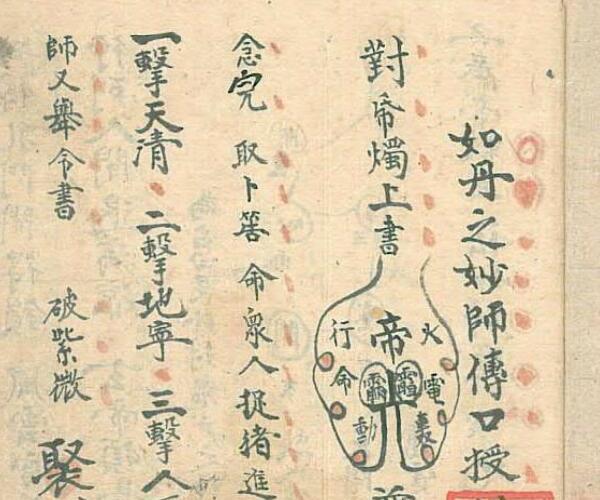 如丹之妙師傳口授
對帝燭上書
帝
火電
行命動
念完 取卜筶 命衆人捉猪進
一擊天清 二擊地寧 三擊人
師又舉令書 破紫微